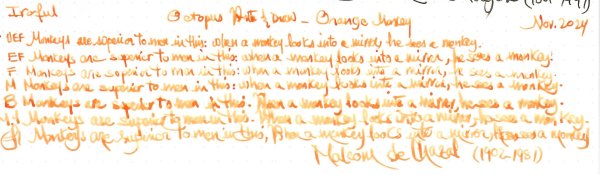 Octopus Write & Draw - Orange Monkey Nov. 2024
EF Monkeys are superior to men in this: when a monkey looks into a mirror, he sees a monkey.
EF Monkeys are superior to men in this: when a monkey looks into a mirror, he sees a monkey.
F Monkeys are superior to men in this: when a monkey looks into a mirror, he sees a monkey.
M Monkeys are superior to men in this: when a monkey looks into a mirror, he sees a monkey.
B Monkeys are superior to men in this: When a monkey looks into a mirror, he sees a monkey.
Monkeys are superior to men in this: When a monkey looks into a mirror, he sees a monkey.
Monkeys are superior to men in this, When a monkey looks into a mirror, he sees a monkey
Malcom de Chazal (1902-1981)